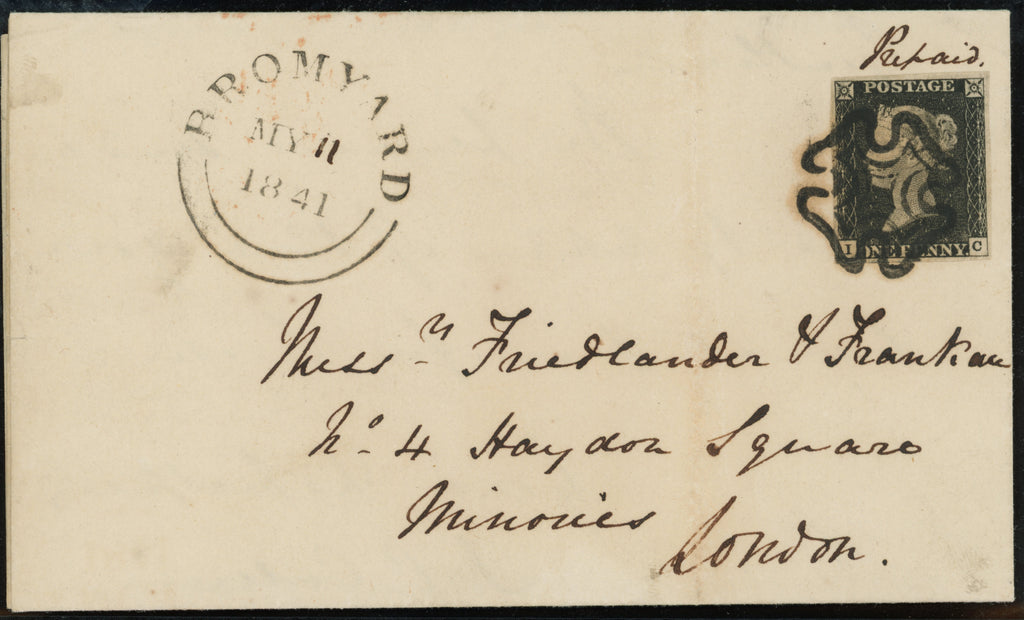 BROMYARD
MY 11
1841
Prepaid.
POSTAGE
I ONE PENNY. C
Mess.rs Friedlander & Frankau
No. 4 Haydon Square
Minories
London.